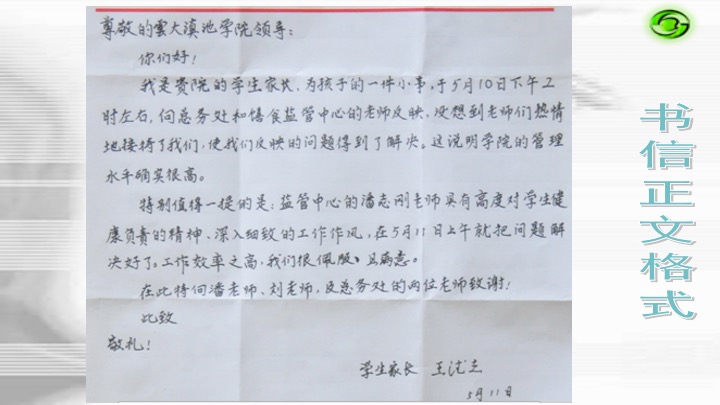 尊敬的雲大滇池学院领导：
你们好！
我是贵院的学生家长，为孩子的一件小事，于5月10日下午2
时左右，向总务处和膳食监管中心的老师反映，没想到老师们热情
地接待了我们，使我们反映的问题得到了解决。这说明学院的管理
水平确实很高。
特别值得一提的是：监管中心的潘志刚老师具有高度对学生健
康负责的精神、深入细致的工作作风，在5月11日上午就把问题解
决好了。工作效率之高，我们很佩服、且满意。
在此特向潘老师、刘老师，及总务处的两位老师致谢！
此致
敬礼！
学生家长 王
5月11日
书信正文格式